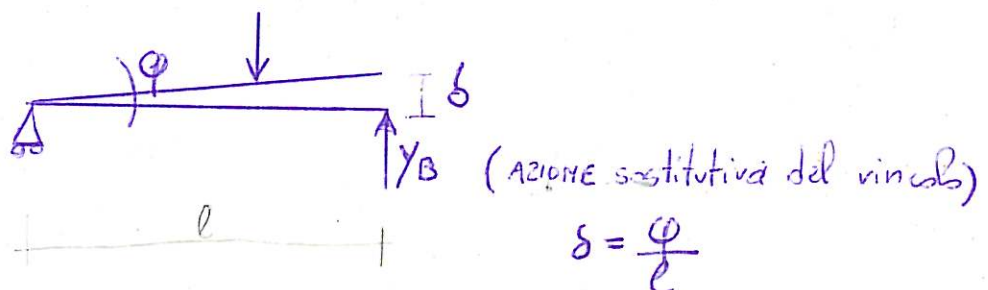 φ
δ
YB (AZIONE sostitutiva del vincolo)
l
δ = φ/l